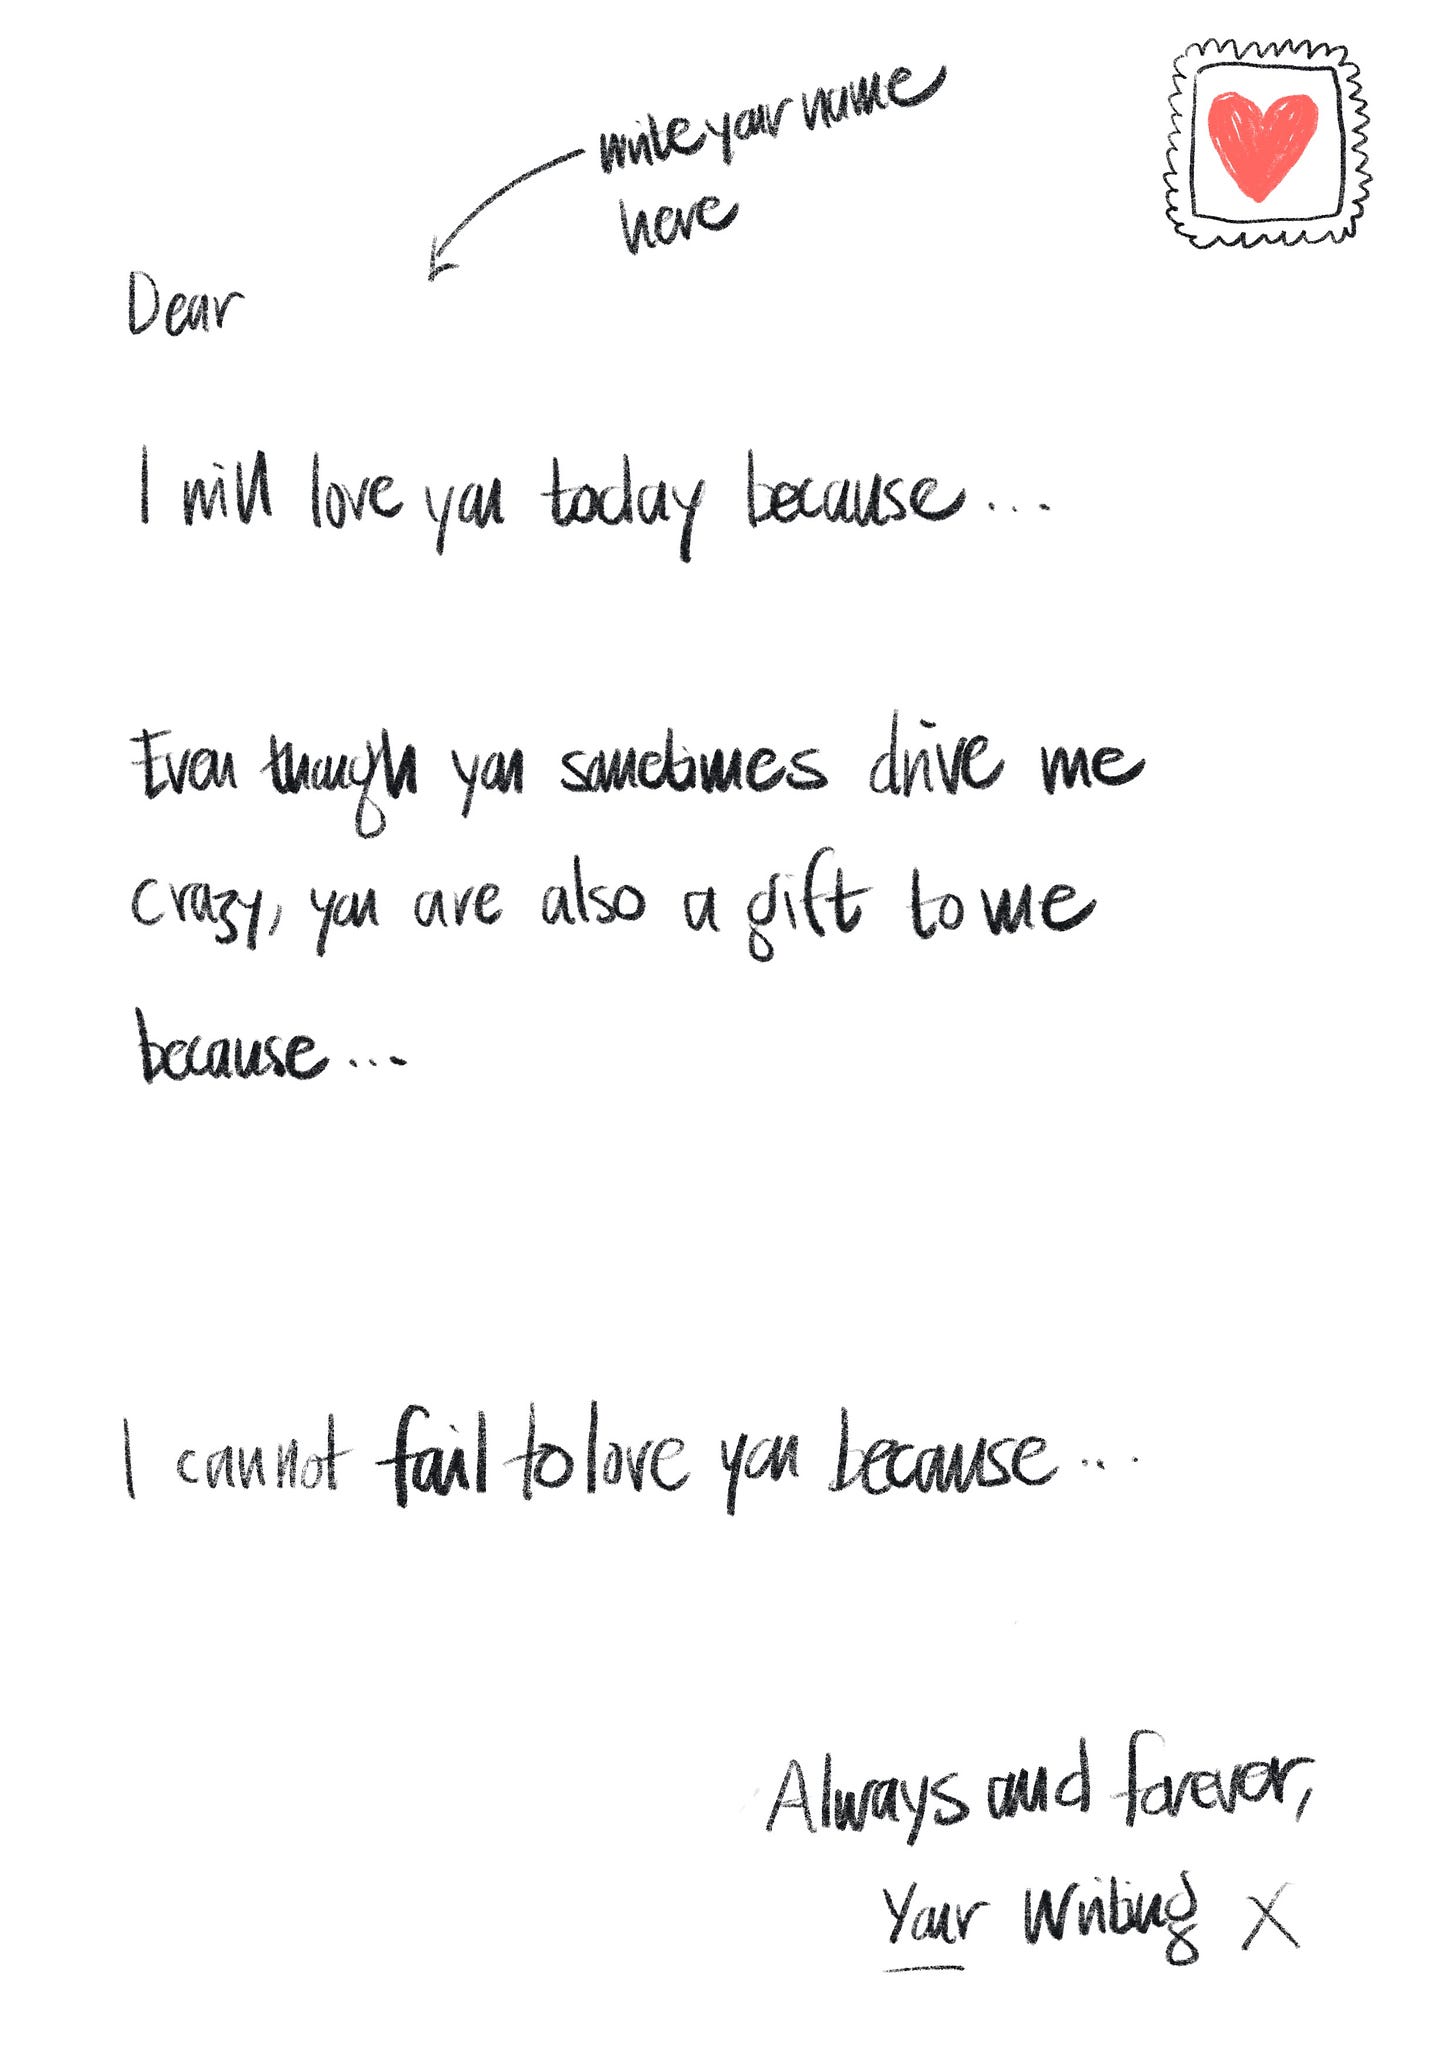 write your name
here
Dear
I will love you today because...
Even though you sometimes drive me
crazy, you are also a gift to me
because...
I cannot fail to love you because...
Always and forever,
Your Writing X